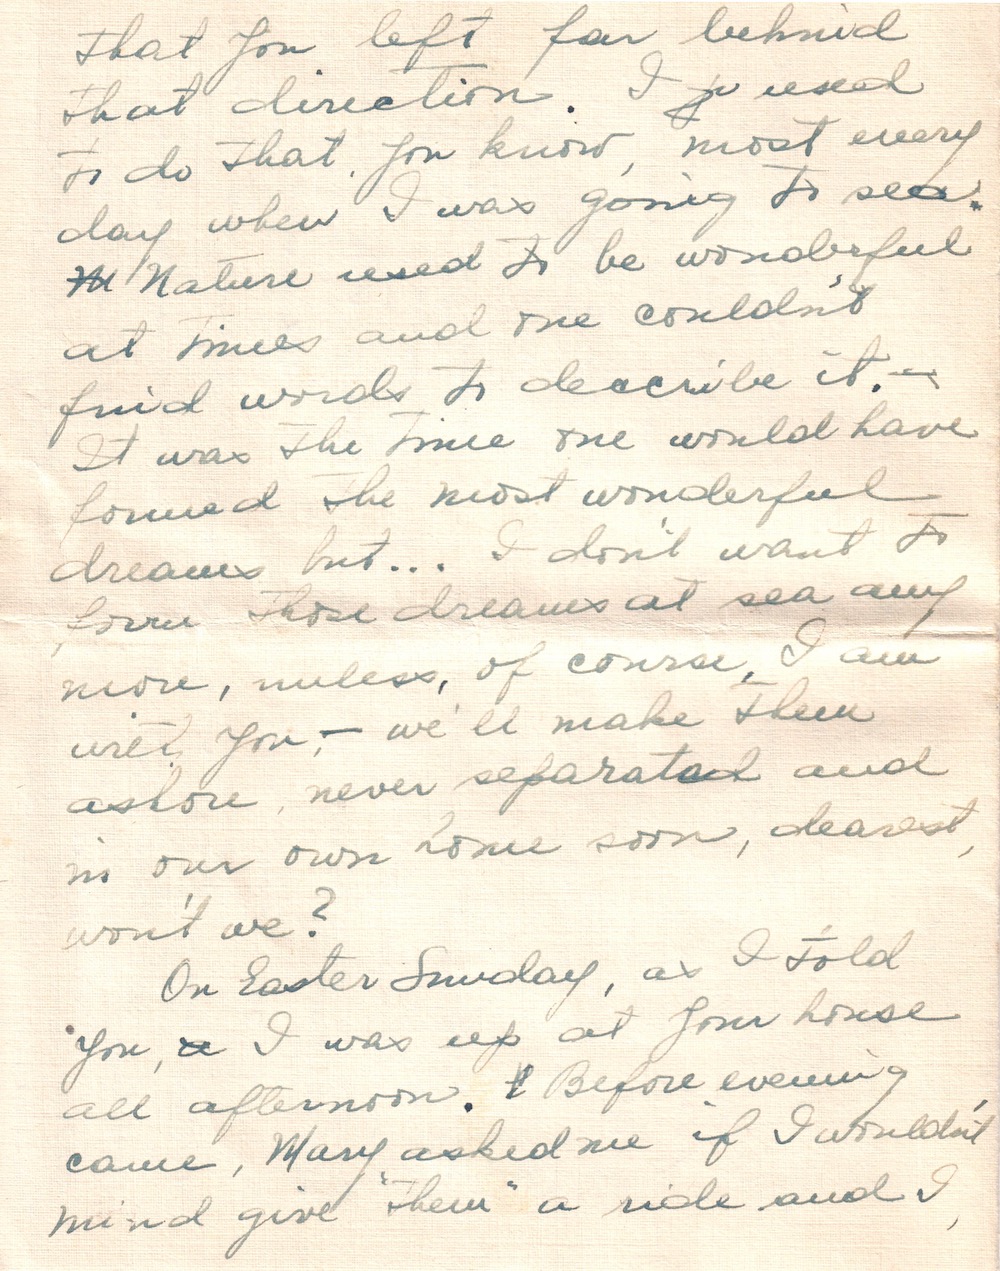 that you left far behind
that direction. I used
to do that, you know, most every
day when I was going to sea.
Nature used to be wonderful
at times and one couldn't
find words to describe it. —
It was the time one would have
formed the most wonderful
dreams but... I don't want to
form those dreams at sea any
more, unless, of course, I am
with you, — we'll make them
ashore, never separated and
in our own home soon, dearest,
won't we?
On Easter Sunday, as I told
you, I was up at your house
all afternoon. Before evening
came, Mary asked me if I wouldn't
mind give "them" a ride and I,